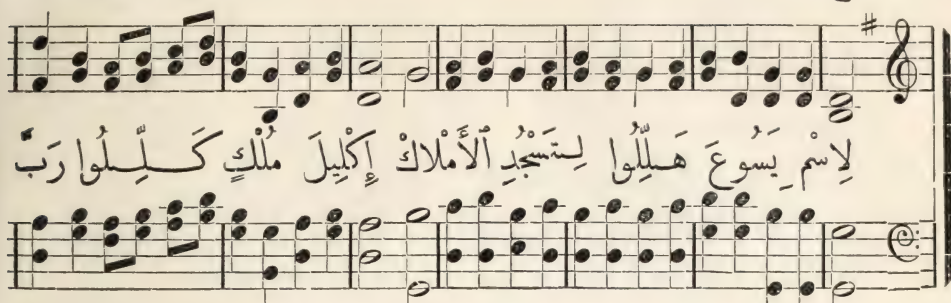 لِٱسْمِ يَسُوعَ هَلِّلُوا لِتَسْجُدِ ٱلْأَمْلَاكْ إِكْلِيلَ مُلْكٍ كَلِّلُوا رَبَّ